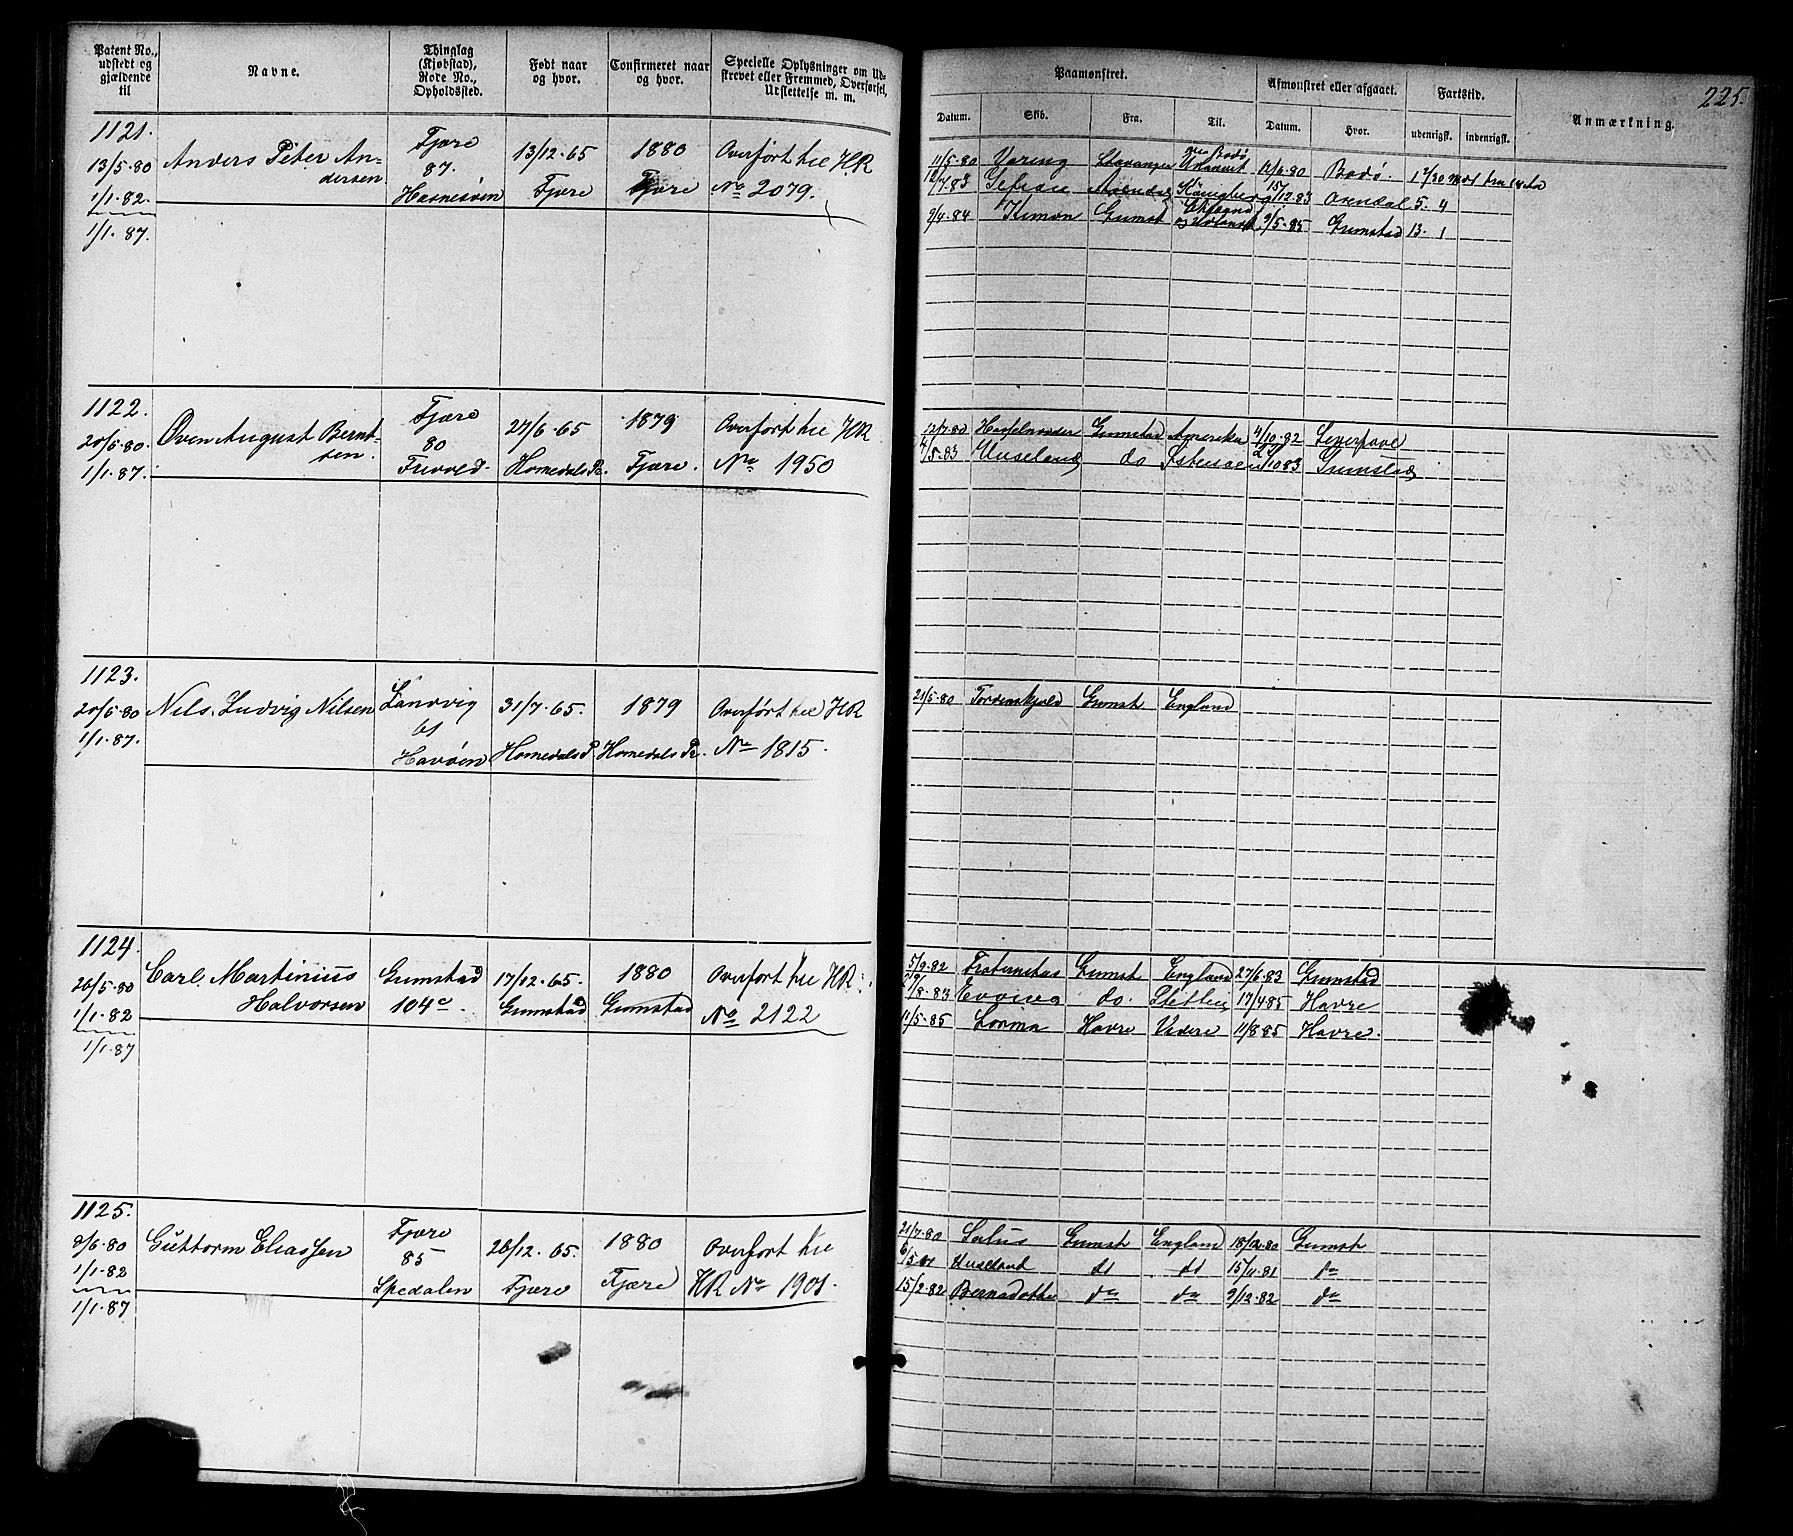 Patent No.,
udstedt og
gjældende
til
Navne.
Thinglag
(Kjøbstad),
Rode No.,
Opholdssted.
Født naar
og hvor.
Confirmeret naar
og hvor.
Specielle Oplysninger om Ud-
skrevet eller Fremmed, Overførsel,
Udslettelse m. m.
1121.
13/5-80
1/1-82.
1/1-87.
Anders Peter An-
dersen
Fjære
87.
Hasnesøen
13/12-65
Fjære
1880
Fjære
Overført til HR
No 2079.
1122.
20/5-80.
1/1-87.
Oven August Bernt-
sen.
Fjære
80
Frivold.
27/6-65
Homedals P.
1879
Fjære.
Overført til HR
No 1950
1123.
20/5-80
1/1-87.
Nils Ludvig Nilsen
Landvig
61
Havøen
31/7-65.
Homedals P.
1879
Homedals P.
Overført til HR
No 1815.
1124.
26/5-80
1/1-82
1/1-87
Carl Martinius
Halvorsen
Grimstad
104c.
17/12-65.
Grimstad
1880
Grimstad
Overført til HR
No 2122
1125.
9/6-80
1/1-82
1/1-87
Guttorm Eliassen
Fjære
85
Spedalen
26/12-65.
Fjære
1880
Fjære
Overført til
HR No 1901.
225.
Paamønstret.
Afmønstret eller afgaaet.
Fartstid.
Anmærkning.
Datum.
Skib.
Fra.
Til.
Datum.
Hvor.
udenrigsk.
indenrigsk.
11/5-80 Væring Stavanger 12/6-80 Bodø.
Arendal Königberg 15/12-83 Arendal 5. 4
9/4-84 Kimon Grimst 9/5-85 Grimstad 13. 1
12/7-80 Grimstad Amerika 4/10-82
4/5-83 Huseland do 10 83 Grimstad
21/5-80 Tordenskjold Grimst England
5/9-82 Fraternitas Grimst England 27/6-83 Grimstad
8-83 do. Stettin 17/4 85 Havre
11/5-85 Lorma Havre Videre 11/8 85 Havre.
21/7-80 Salus Grimst England 18/12-80 Grimst
6/5-81 Huseland dt dt 15/4-81 do
15/2-82 Bernadotte do do 9/12-82 do